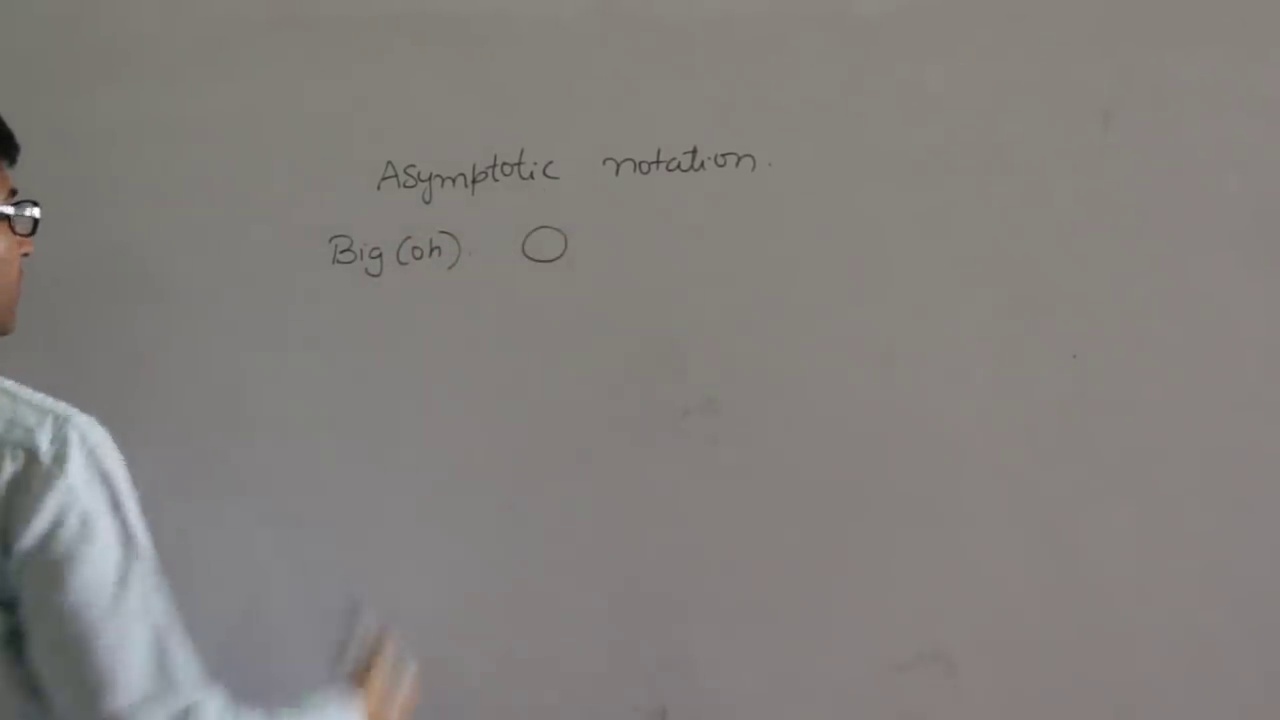 Asymptotic notation.
Big (oh). O